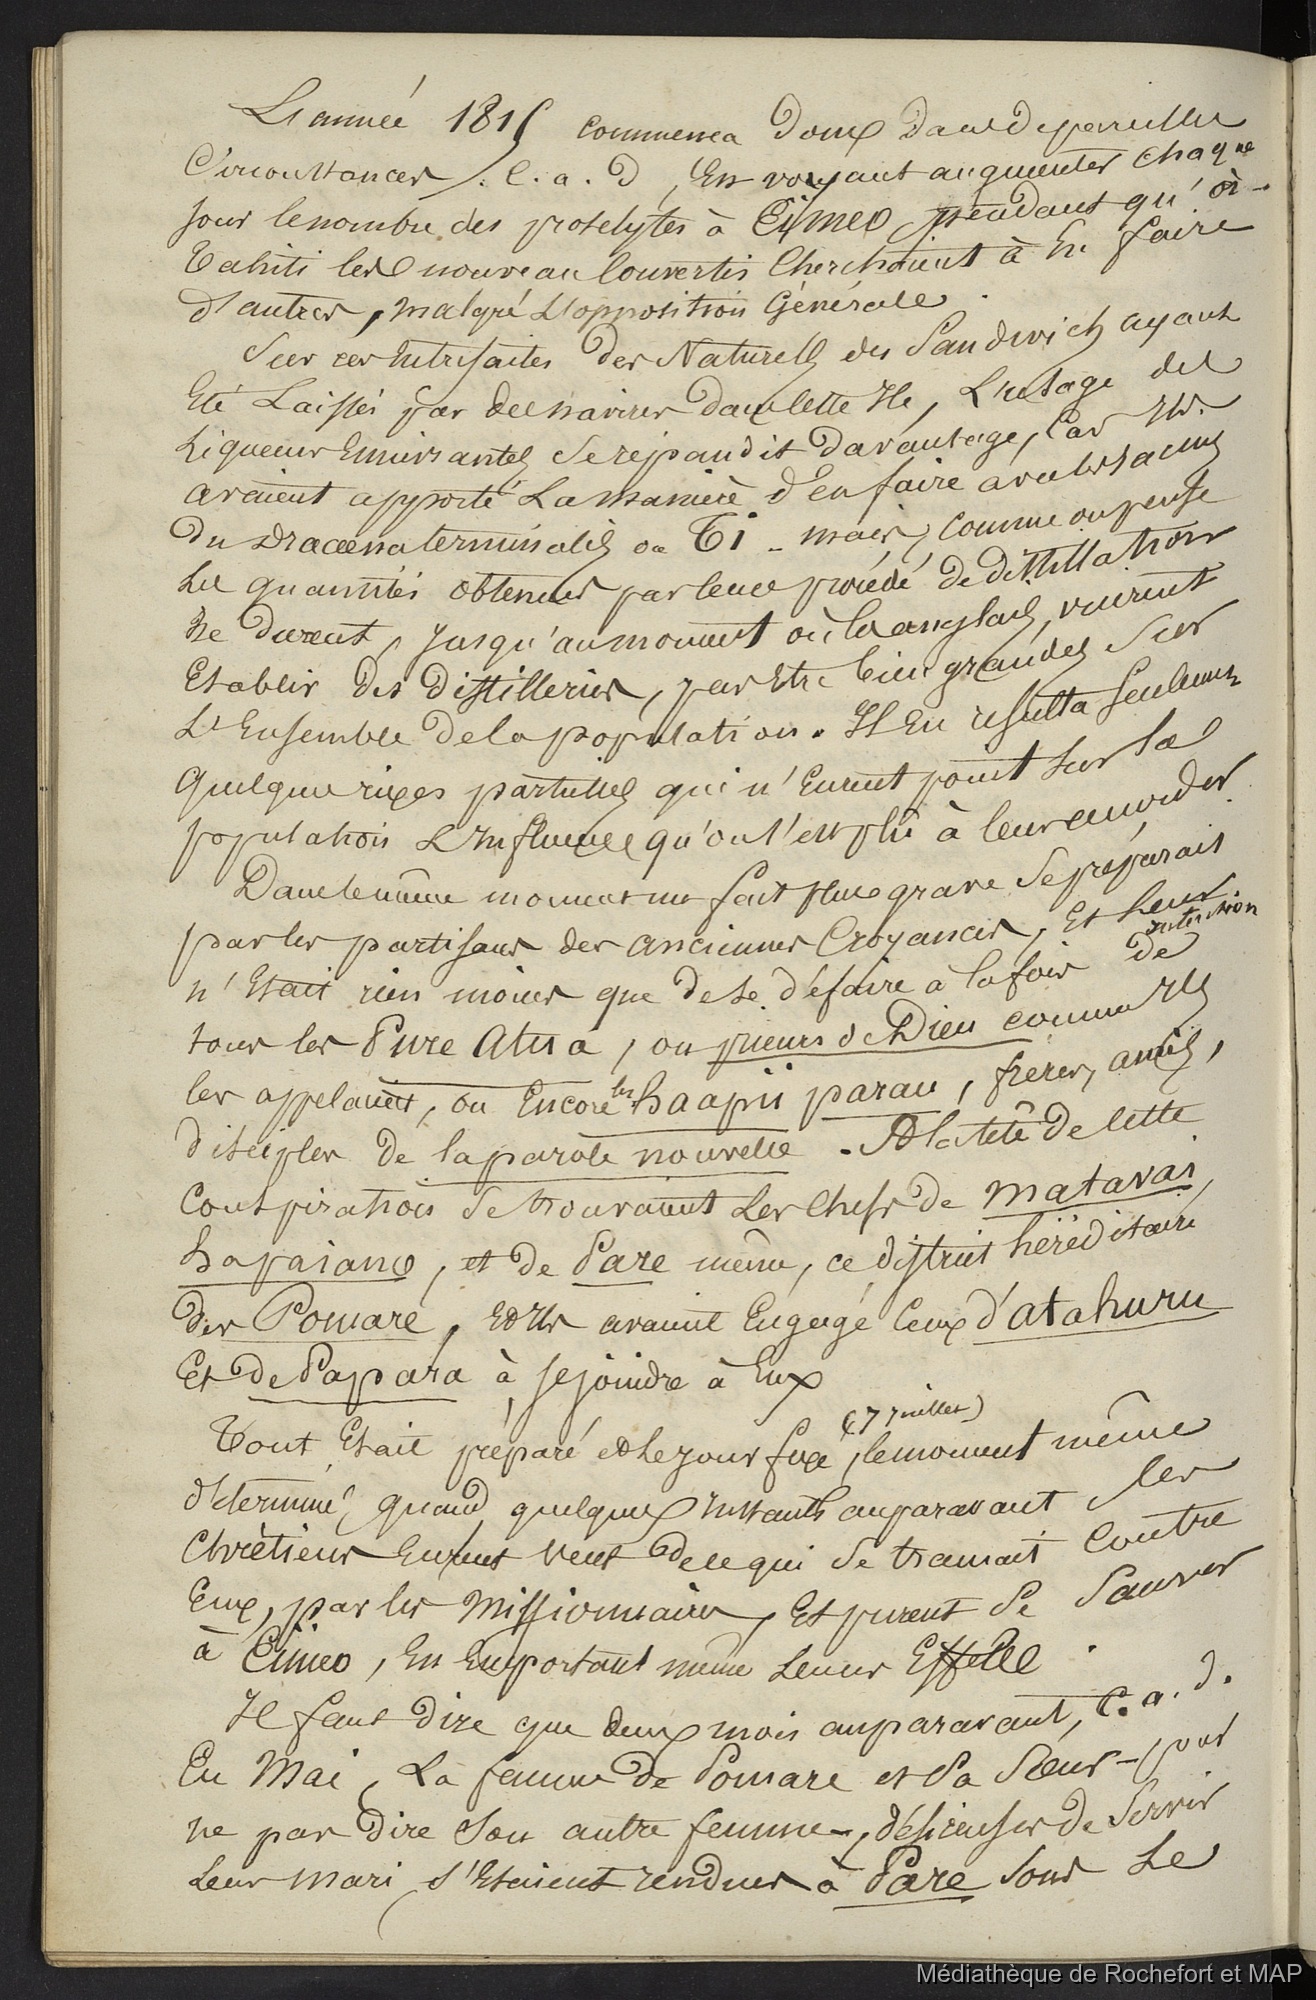 L'année 1815 commença donc dans de pareilles
Circonstances, C.a.d, En voyant augmenter chaque
jour le nombre des proselytes à Eimeo pendant qu'à
Tahiti les nouveau Convertis Cherchaient à En faire
d'autres, malgré L'opposition Générale.
Sur ces Entrefaites des Naturels des Sandwich ayant
Eté Laissés par des navires dans cette Ile, L'usage des
Liqueurs Enivrantes se répandit davantage, Car Ils
avaient apporté La manière d'en faire avec les racines
du dracaena terminalis ou Ti - mais, comme on pense
Les quantités obtenues par leur procédé de distillation
Ne durent, jusqu'au moment où les anglais vinrent
Etablir des distilleries, pas Etre bien grandes sur
L'Ensemble de la population. Il En résulta seulement
quelques rixes partielles qui n'Eurent point sur la
population L'Influence qu'on s'est plu à leur accorder.
Dans le même moment un fait plus grave se préparait
par les partisans des anciennes Croyances, Et leur
intention
n'Etait rien moins que de se défaire à la fois de
tous les Pure Atua, ou prieurs de Dieu comme Ils
les appelaient, ou Encore les haapii parau, frères, amis,
disciples de la parole nouvelle. A la tête de cette
Conspiration se trouvaient Les Chefs de Matavai,
hapaiano, et de Pare même, ce district héréditaire
des Pomaré, Et Ils avaient Engagé Ceux d'atahuru
Et de Papara à se joindre à Eux
(7 juillet)
Tout Etait préparé et le jour fixé, le moment même
déterminé, quand quelques Instants auparavant les
Chrétiens Eurent vent de ce qui se tramait contre
Eux, par les Missionnaires, Et purent se Sauver
à Eimeo, En Emportant même Leurs Effets.
Il faut dire que deux mois auparavant, C.a.d.
En Mai, La femme de Pomare et Sa Soeur - pour
ne pas dire Son autre femme -, désireuses de Servir
Leur mari s'Etaient rendues à Pare sous Le
Médiathèque de Rochefort et MAP